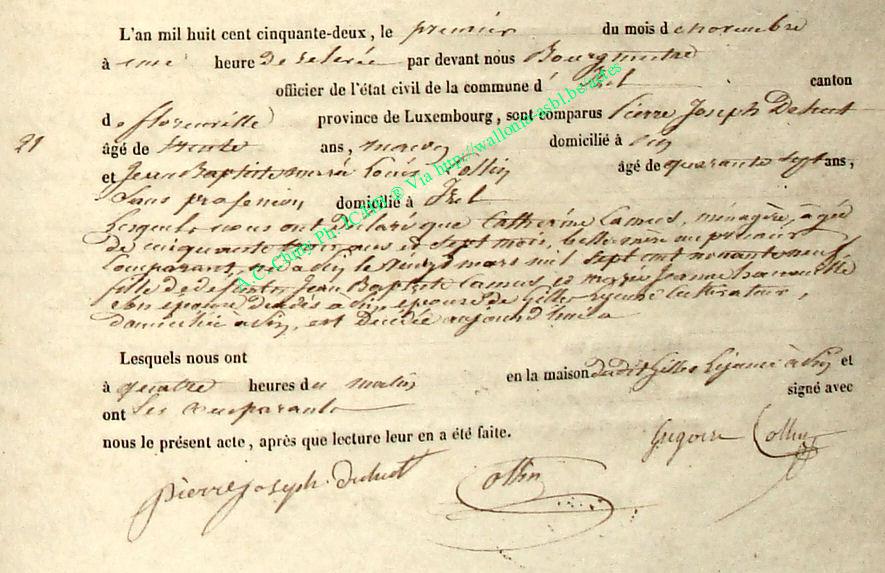 L'an mil huit cent cinquante-deux, le premier du mois de novembre
à une heure de relevée par devant nous Bourgmestre
officier de l'état civil de la commune d' Izel canton
de florenville province de Luxembourg, sont comparus Pierre Joseph Dehut
21
âgé de trente ans, domicilié à
et Jean Baptiste Collin âgé de quarante sept ans,
Sans profession, domicilié à Izel
Lesquels nous ont déclaré que Catherine Camus, ménagère, âgée
de cinquante trois ans et sept mois, belle mère au premier
Comparant, née à le mars mil sept cent nonante neuf
fille de défunts Jean Baptiste Camus et Marie Jeanne
épouse de Gilles Lejeune Cultivateur,
domicilié à est Décédée aujourd'hui
Lesquels nous ont
à quatre heures du matin en la maison dudit Gilles Lejeune à et
ont les comparants signé avec
nous le présent acte, après que lecture leur en a été faite.
Grégoire Collin
pierre joseph dehut Collin
A.C. Chiny Ph. ® Via http://wallonia-asbl.be/actes